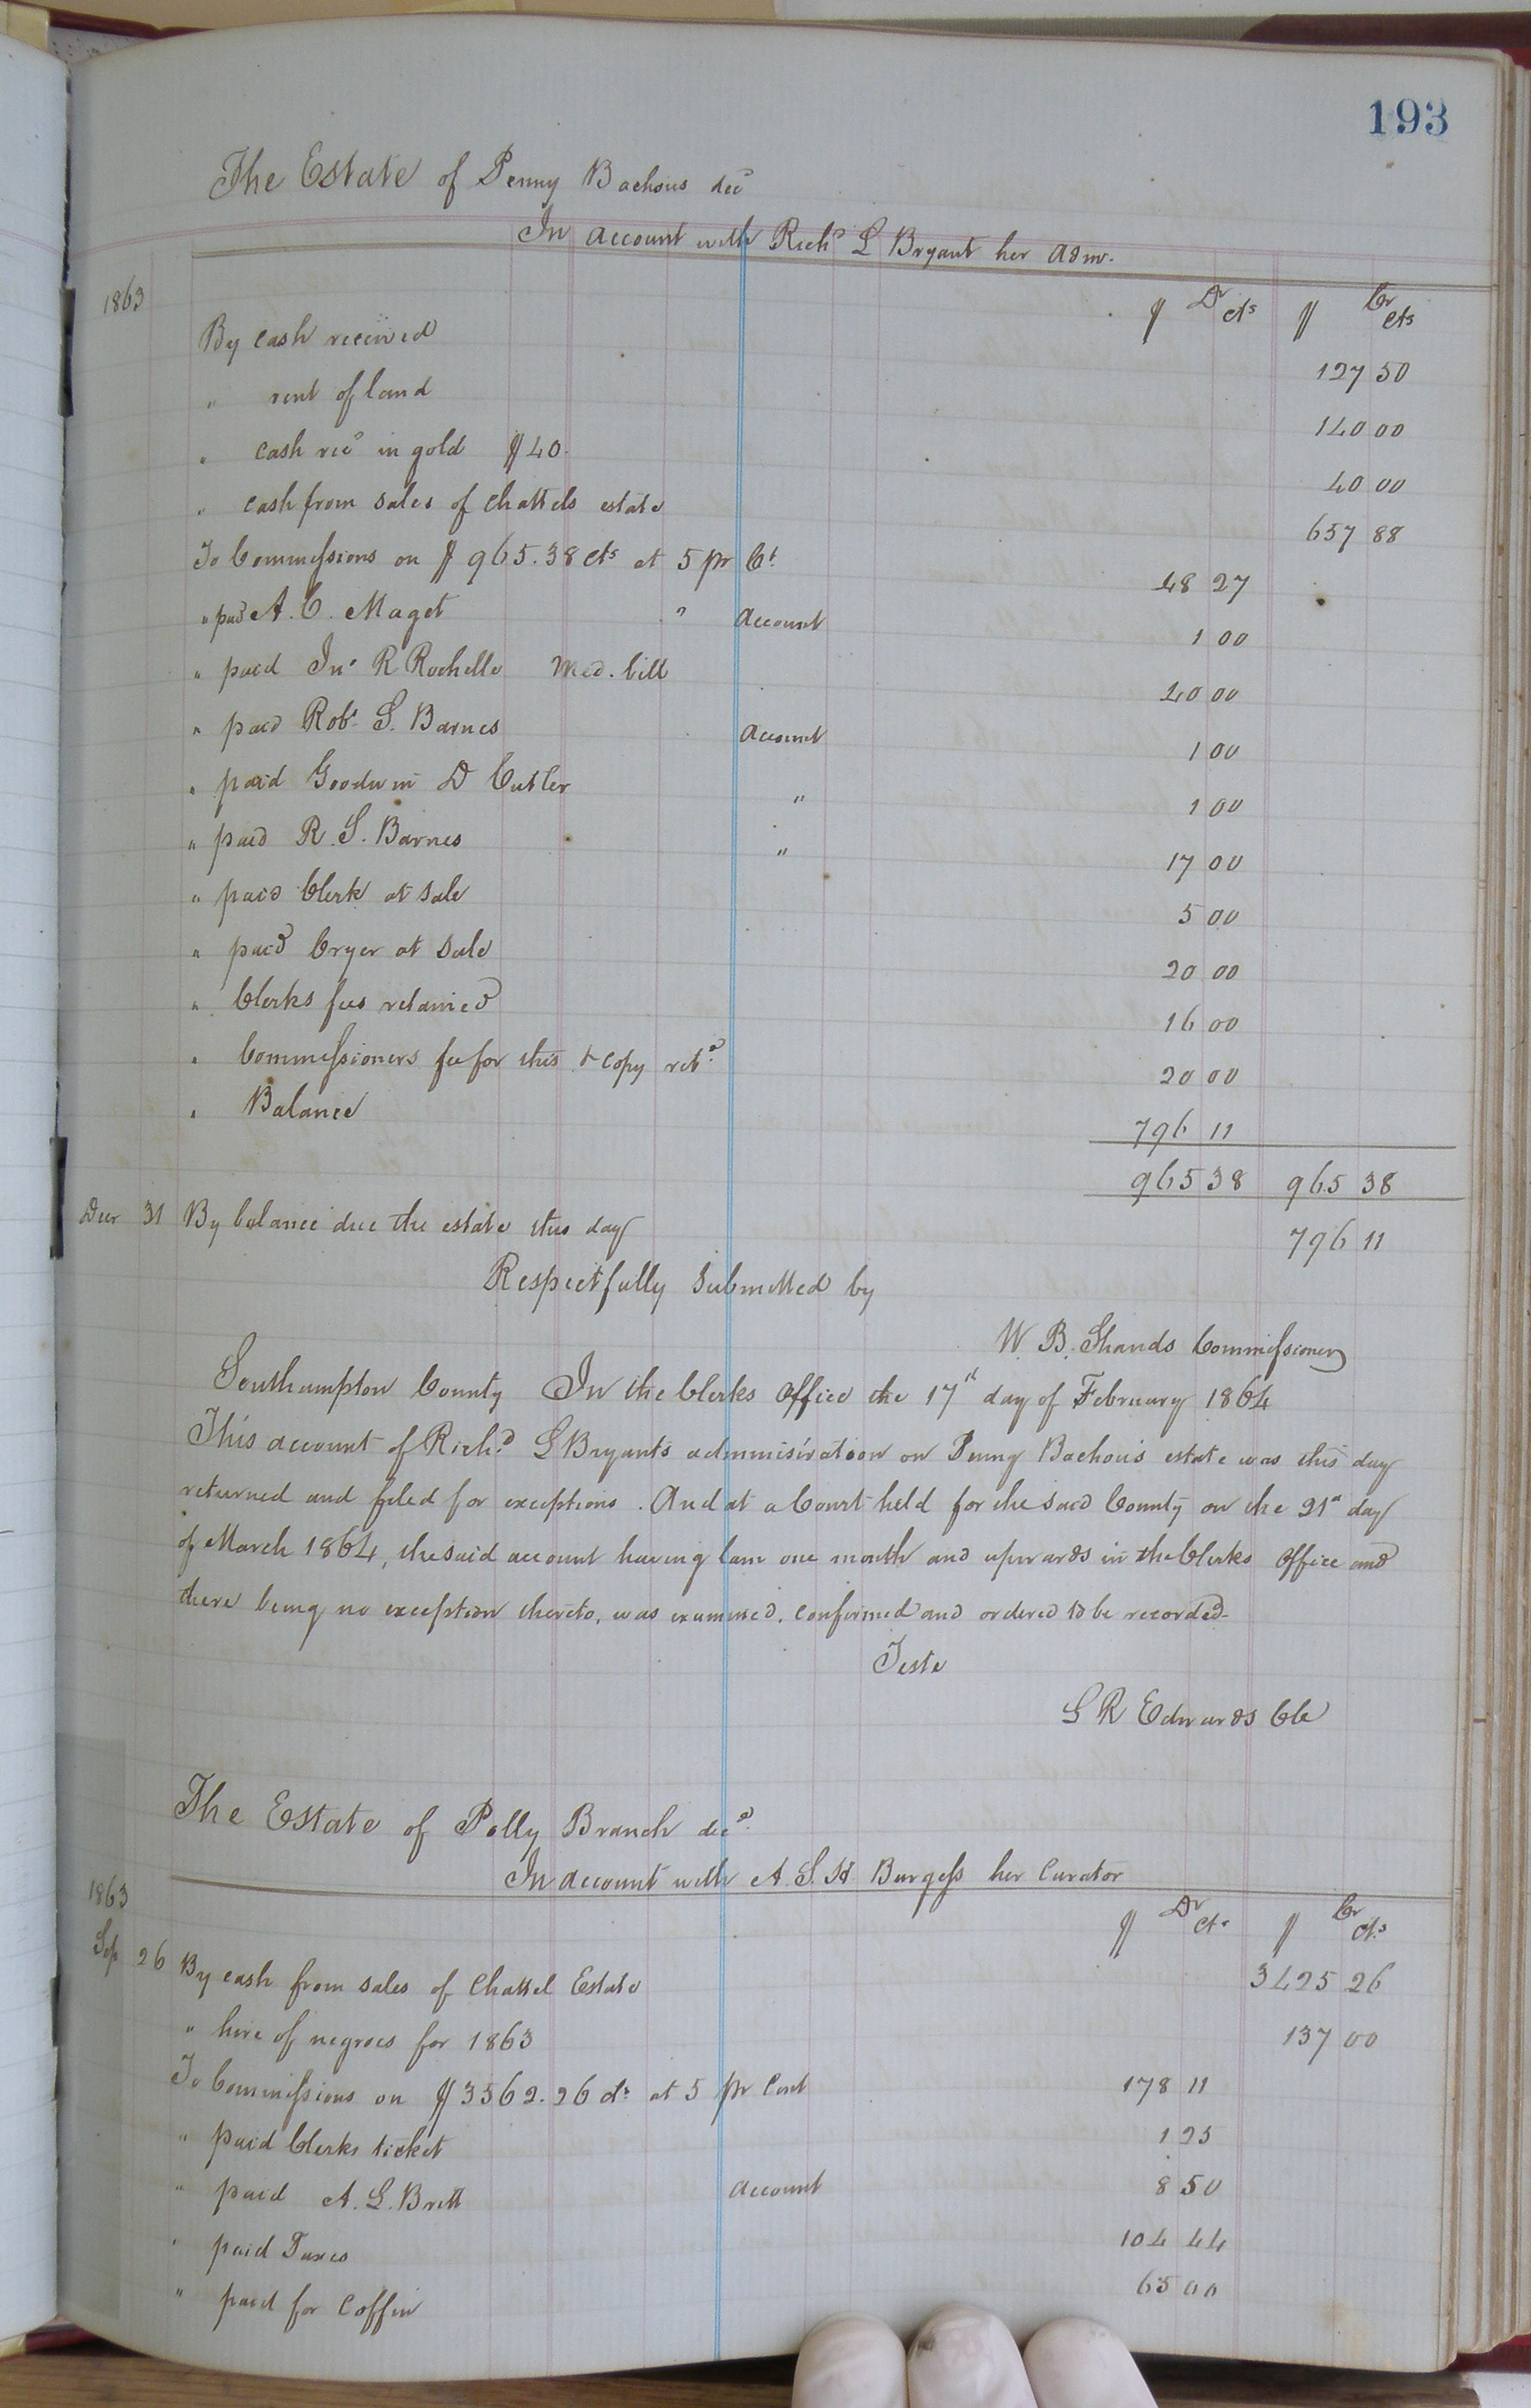 193
The Estate of Penny Bachous decd
In account with Richd L Bryant her adm.
1863 $ Dr cts $ Cr cts
By cash received 127 50
" rent of land 140 00
" cash recd in gold $40. 40 00
" cash from sales of chattels estate 657 88
To Commissions on $965.38 cts at 5 pr Ct. 48 27
" paid A. C. Maget " account 1 00
" paid Jno R Rochelle Med. bill 40 00
" paid Robt S. Barnes account 1 00
" paid Goodwin D Cutler " 1 00
" paid R. S. Barnes " 17 00
" paid Clerk at sale 5 00
" paid Cryer at sale 20 00
" Clerks fees retained 16 00
" Commissioners fee for this & copy retd. 20 00
" Balance 796 11
965 38 965 38
Decr 31 By balance due the estate this day 796 11
Respectfully submitted by
W. B. Shands Commissioner
Southampton County In the Clerks Office the 17th day of February 1864
This account of Richd. L Bryants administration on Penny Bachous estate was this day
returned and filed for exceptions. And at a Court held for the said County on the 21st day
of March 1864, the said account having lain one month and upwards in the Clerks Office and
there being no exception thereto, was examined, confirmed and ordered to be recorded-
Teste
L R Edwards Clk
The Estate of Polly Branch decd.
In account with A. S. H. Burgess her Curator
1863 $ Dr cts $ Cr cts
Sep 26 By cash from sales of Chattel Estate 3425 26
" hire of negroes for 1863 137 00
To Commissions on $3562.26 cts at 5 pr Cent 178 11
" paid Clerks ticket 1 25
" paid A. L. Britt account 8 50
" paid Taxes 104 44
" paid for Coffin 65 00